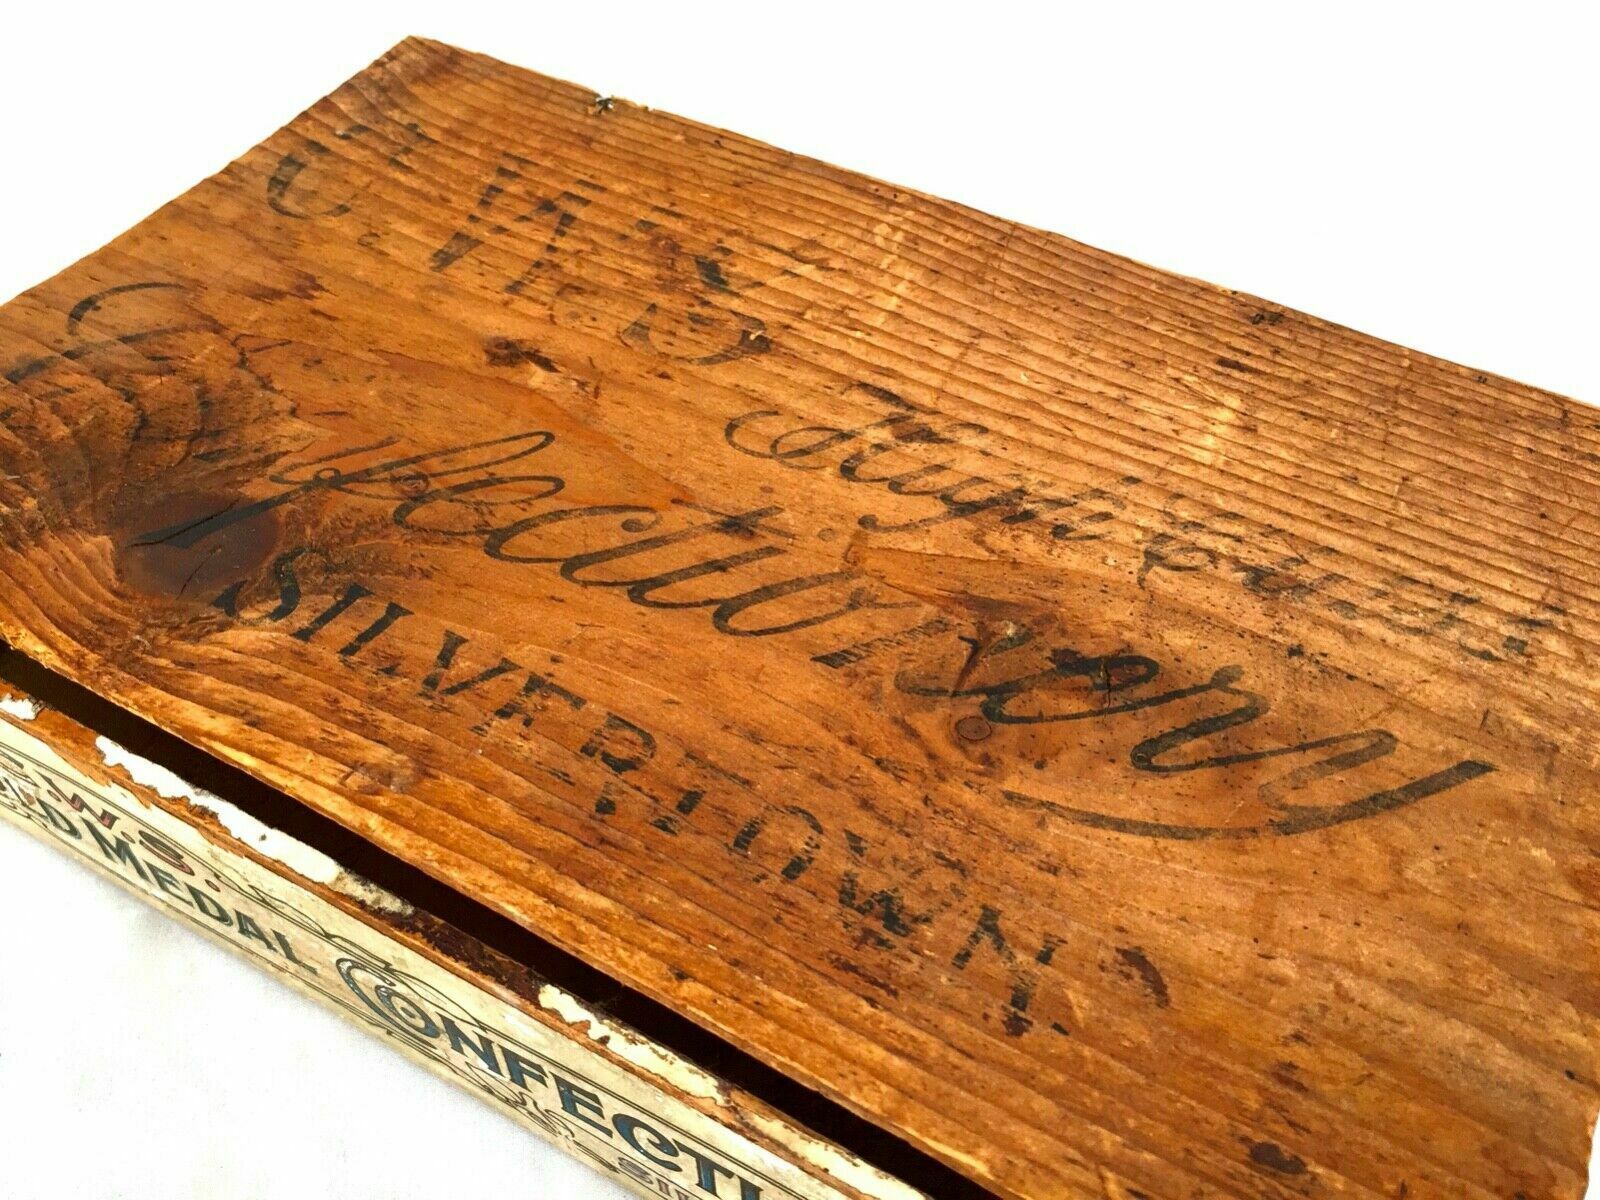 C.W.S.
High Class
Confectionery
SILVERTOWN.
C.W.S.
GOLD MEDAL CONFECTI
SIL